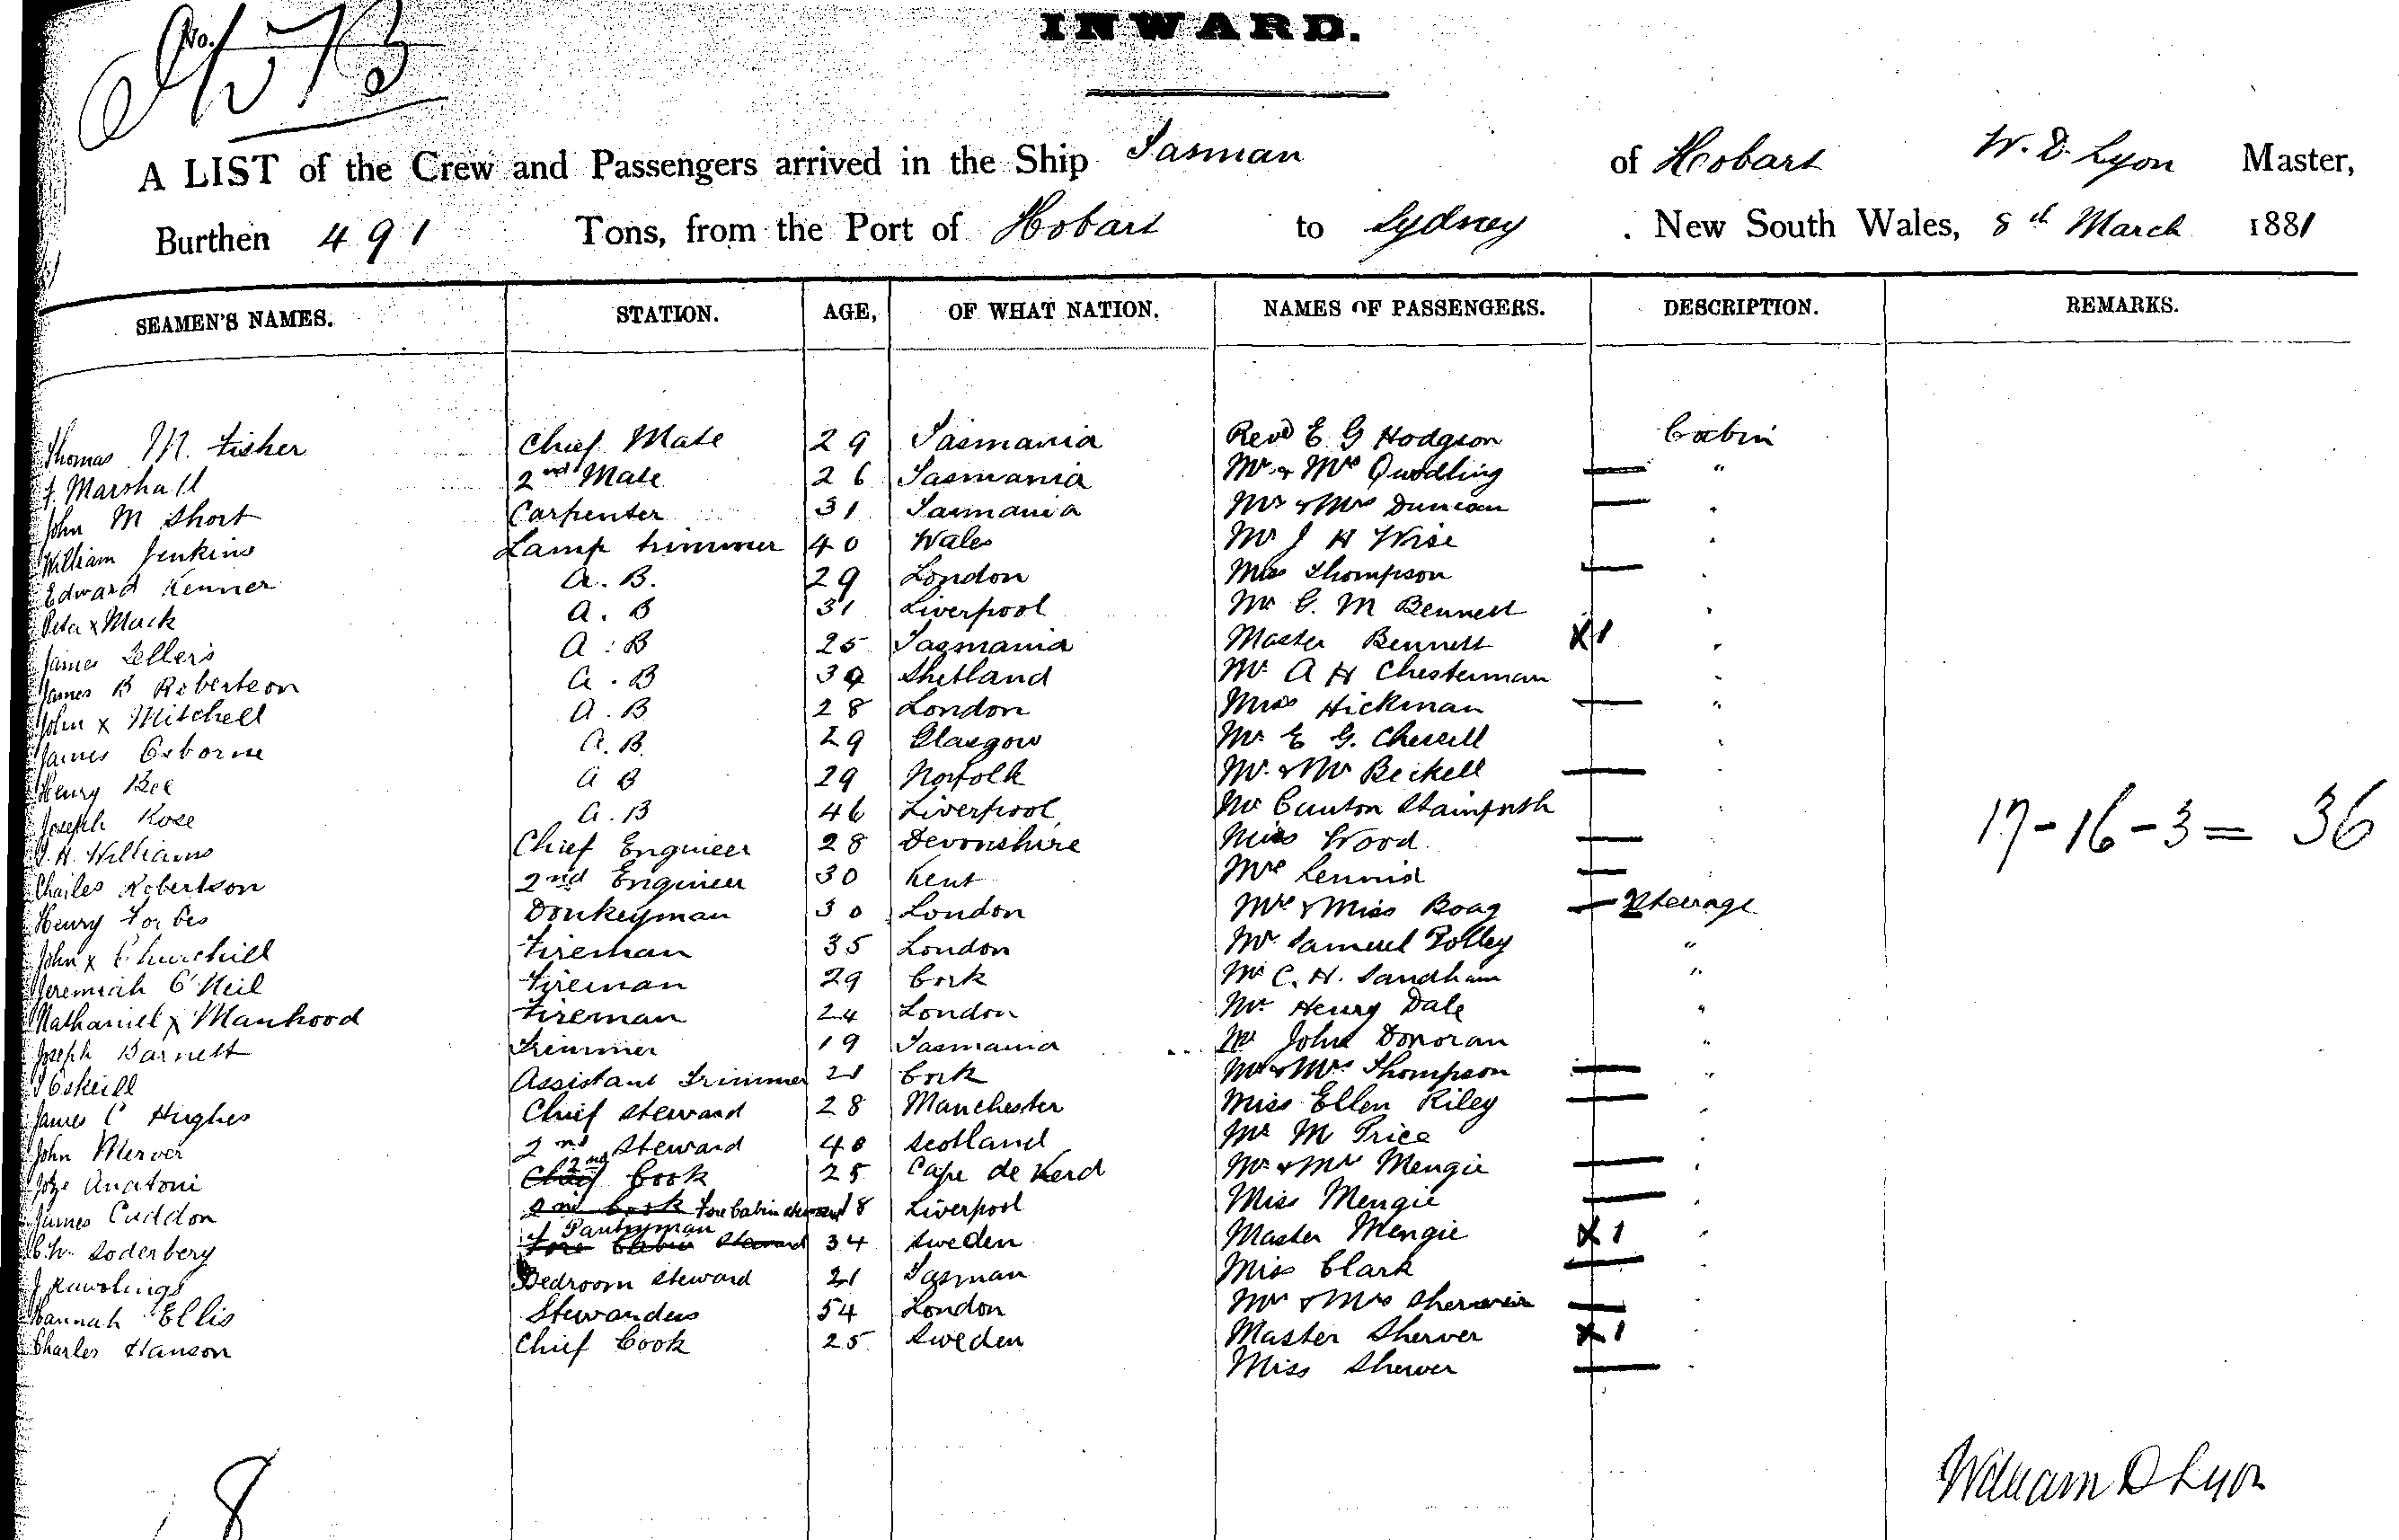 No.
INWARD.
A LIST of the Crew and Passengers arrived in the Ship Tasman of Hobart W. D. Lyon Master,
Burthen 491 Tons, from the Port of Hobart to Sydney . New South Wales, 8th March 1881
SEAMEN'S NAMES. STATION. AGE, OF WHAT NATION. NAMES OF PASSENGERS. DESCRIPTION. REMARKS.
Thomas M. Fisher Chief Mate 29 Tasmania Revd E G Hodgson Cabin
F. Marshall 2nd Mate 26 Tasmania Mr & Mrs Quodling — "
John M Short Carpenter 31 Tasmania Mr & Mrs Duncan — "
William Jenkins Lamp trimmer 40 Wales Mr J H Wise "
Edward Kenner A. B. 29 London Miss Thompson — "
Peter x Mack A. B 31 Liverpool Mr G. M Bennett "
James Sellers A. B 25 Tasmania Master Bennett X1 "
James B Robertson A. B Shetland Mr A H Chesterman "
John x Mitchell A. B 28 London Miss Hickman — "
James Osborne A. B. 29 Glasgow Mr E G. "
Henry Bee A B 29 Norfolk Mr & Mrs Beckell — "
Joseph Rose A. B 46 Liverpool Mr Stainforth "
J. H. Williams Chief Engineer 28 Devonshire Miss Wood —
Charles Robertson 2nd Engineer 30 Kent Mrs —
Henry Forbes Donkeyman 30 London Mrs & Miss Boag — Steerage
John x Churchill Fireman 35 London Mr Samuel Polley "
Jeremiah O'Neil Fireman 29 Cork Mr C. H. Sandham "
Nathaniel x Manhood Fireman 24 London Mr Henry Dale "
Joseph Barnett Trimmer 19 Tasmania Mr John Donovan "
Assistant Trimmer 21 Cork Mr & Mrs Thompson — "
James C Hughes Chief Steward 28 Manchester Miss Ellen Riley — "
John Mercer 2nd Steward 40 Scotland Mr M Price "
Anatoni 2nd Chief Cook 25 Cape de Verd Mr & Mrs Mengie — "
James Cuddon 2nd Cook Fore Cabin steward 18 Liverpool Miss Mengie — "
Soderbery Pantryman Fore Cabin Steward 34 Sweden Master Mengie X1 "
J Rawlings Bedroom Steward 21 Tasman Miss Clark — "
Hannah Ellis Stewardess 54 London Mr & Mrs —
Charles Hanson Chief Cook 25 Sweden Master Sherver X1
Miss Sherver —
17 - 16 - 3 = 36
William D Lyon
8